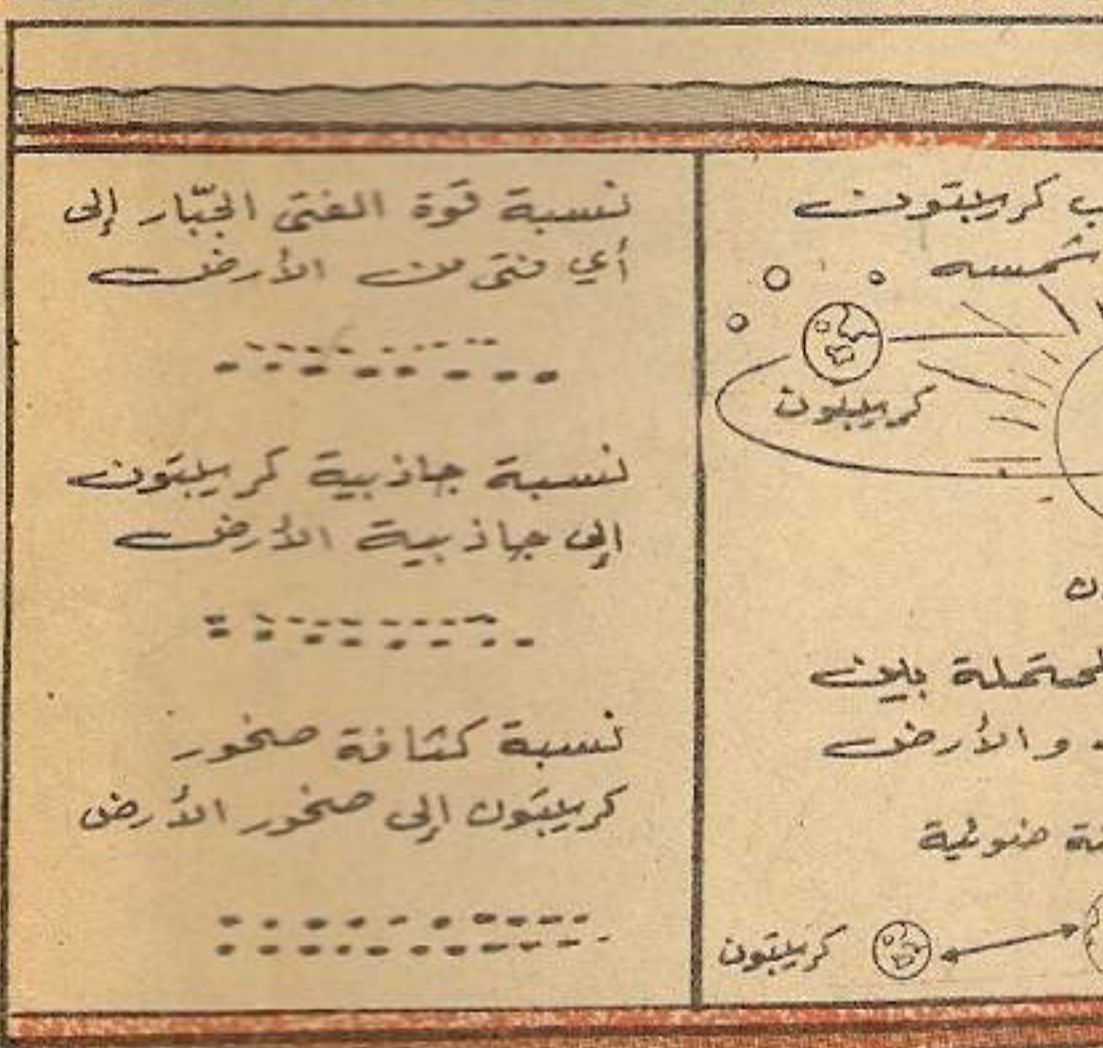 كريبتون
شمسه
كريبتون
ن
بين
والأرض
ضوئية
كريبتون
نسبة قوة الفتى الجبّار إلى
أي فتى من الأرض
نسبة جاذبية كريبتون
إلى جاذبية الأرض
نسبة كثافة صخور
كريبتون إلى صخور الأرض